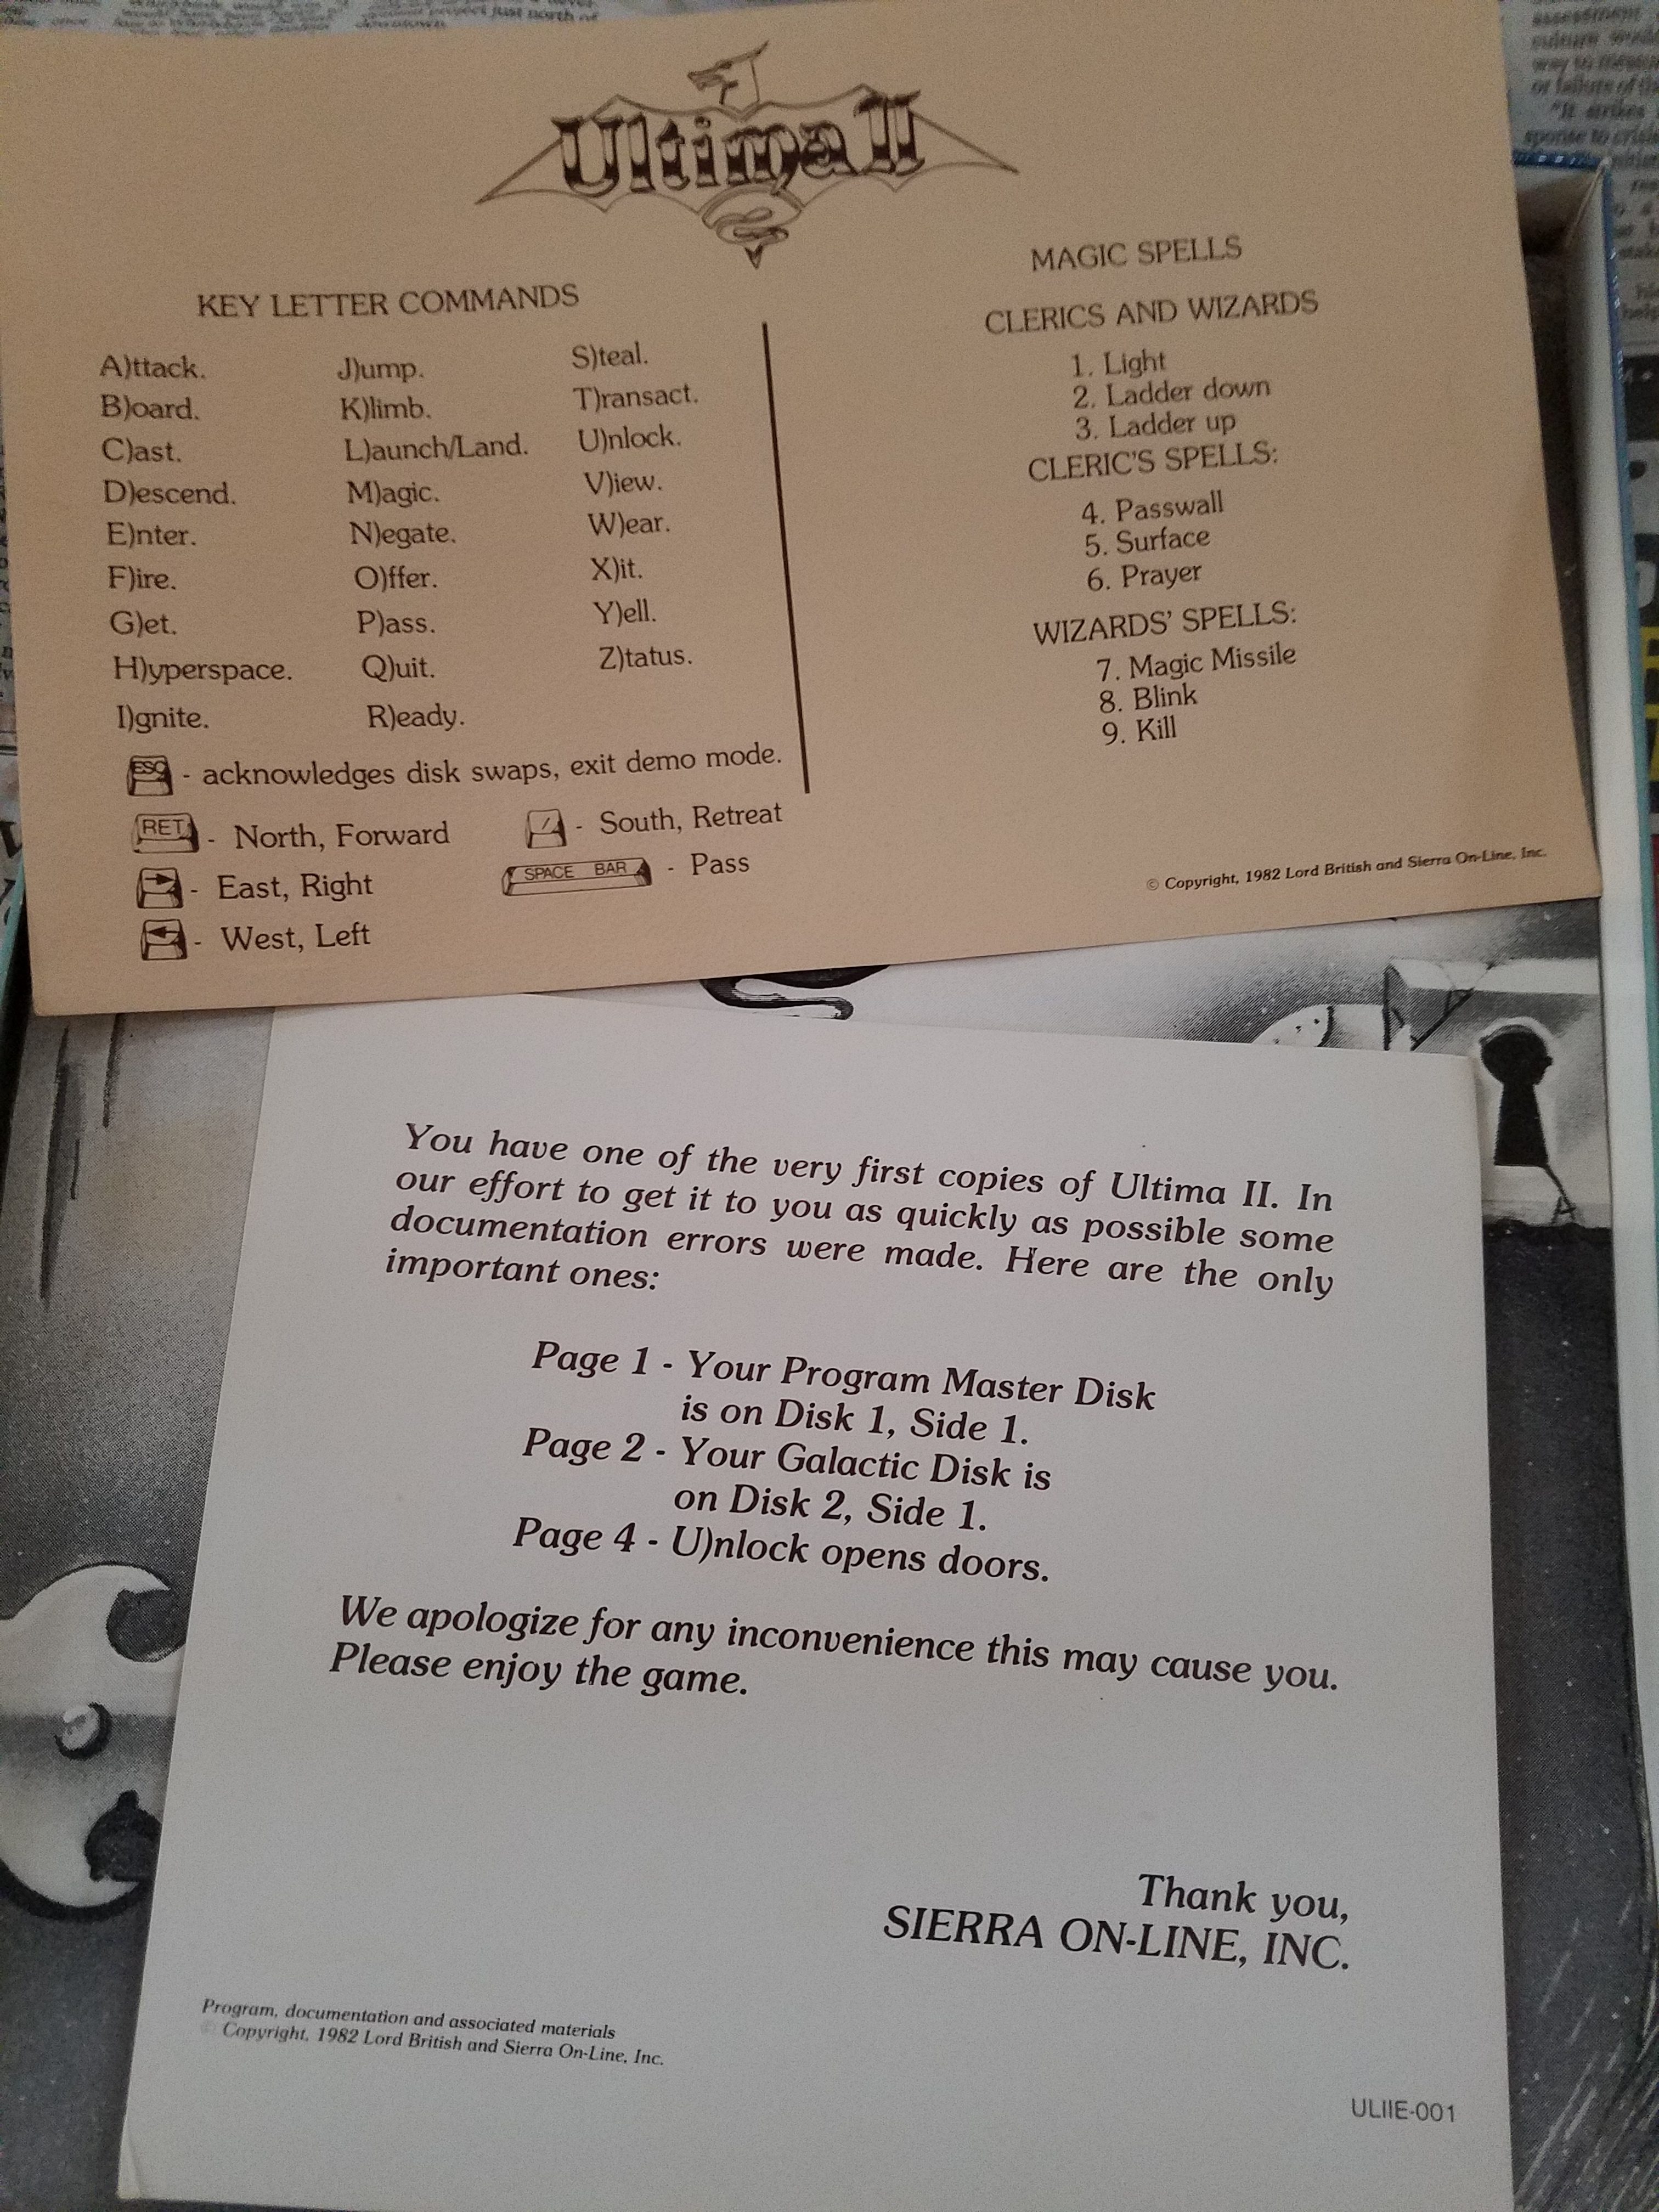 project just north of
downtown.
assessment
culture would
way to measure
or failure of the
"It strikes
sponse to crisis
Ultima II
KEY LETTER COMMANDS
A)ttack.
B)oard.
C)ast.
D)escend.
E)nter.
F)ire.
G)et.
H)yperspace.
I)gnite.
J)ump.
K)limb.
L)aunch/Land.
M)agic.
N)egate.
O)ffer.
P)ass.
Q)uit.
R)eady.
S)teal.
T)ransact.
U)nlock.
V)iew.
W)ear.
X)it.
Y)ell.
Z)tatus.
ESC - acknowledges disk swaps, exit demo mode.
RET - North, Forward
→ - East, Right
← - West, Left
/ - South, Retreat
SPACE BAR - Pass
MAGIC SPELLS
CLERICS AND WIZARDS
1. Light
2. Ladder down
3. Ladder up
CLERIC'S SPELLS:
4. Passwall
5. Surface
6. Prayer
WIZARDS' SPELLS:
7. Magic Missile
8. Blink
9. Kill
© Copyright, 1982 Lord British and Sierra On-Line, Inc.
You have one of the very first copies of Ultima II. In
our effort to get it to you as quickly as possible some
documentation errors were made. Here are the only
important ones:
Page 1 - Your Program Master Disk
is on Disk 1, Side 1.
Page 2 - Your Galactic Disk is
on Disk 2, Side 1.
Page 4 - U)nlock opens doors.
We apologize for any inconvenience this may cause you.
Please enjoy the game.
Thank you,
SIERRA ON-LINE, INC.
Program, documentation and associated materials
© Copyright, 1982 Lord British and Sierra On-Line, Inc.
ULIIE-001